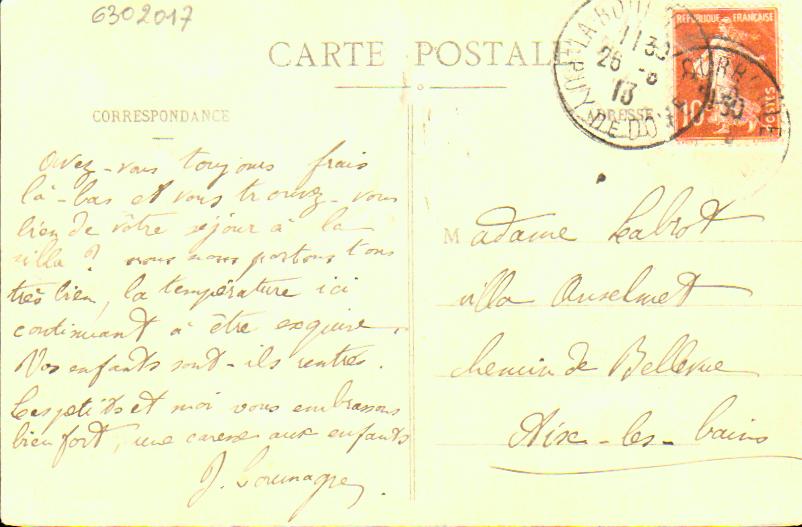 6302017
CARTE POSTALE
CORRESPONDANCE
ADRESSE
RÉPUBLIQUE FRANÇAISE
10
POSTES
LA-BOURBOULE
PUY-DE-DOME
1130
26 -8
13
Avez-vous toujours frais
là-bas et vous trouvez-vous
bien de vôtre séjour à la
villa ? nous nous portons tous
très bien, la température ici
continuant à être exquise.
Vos enfants sont-ils rentrés.
Les petits et moi vous embrassons
bien fort, une caresse aux enfants
J.
Madame Labrot
villa Anselmet
chemin de Bellevue
Aix-les-bains